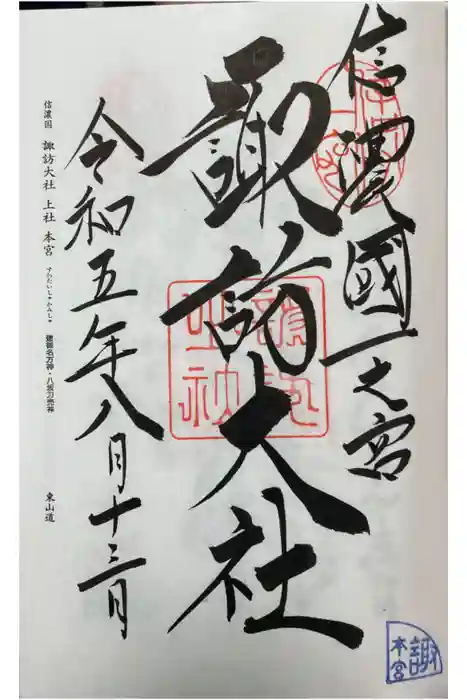 信濃國一之宮
諏訪大社
諏訪大社
令和五年八月十三日
信濃国 諏訪大社 上社 本宮 すわたいしゃかみしゃ 建御名方神・八坂刀売神 東山道
諏
本宮